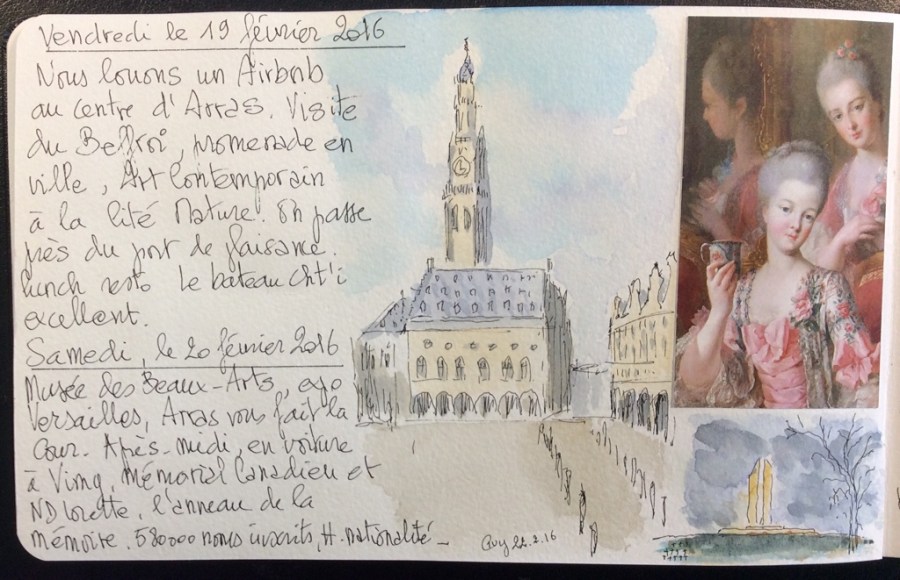 Vendredi le 19 février 2016
Nous louons un Airbnb
au centre d'Arras. Visite
du Beffroi, promenade en
ville, Art Contemporain
à la Cité Nature. On passe
près du port de plaisance.
Lunch resto Le bateau cht'i
excellent.
Samedi, le 20 février 2016
Musée des Beaux-Arts, expo
Versailles, Arras vous fait la
Cour. Après-midi, en voiture
à Vimy, Mémorial Canadien et
ND Lorette, l'anneau de la
mémoire. 580000 noms inscrits, #. nationalité
Guy 22.2.16